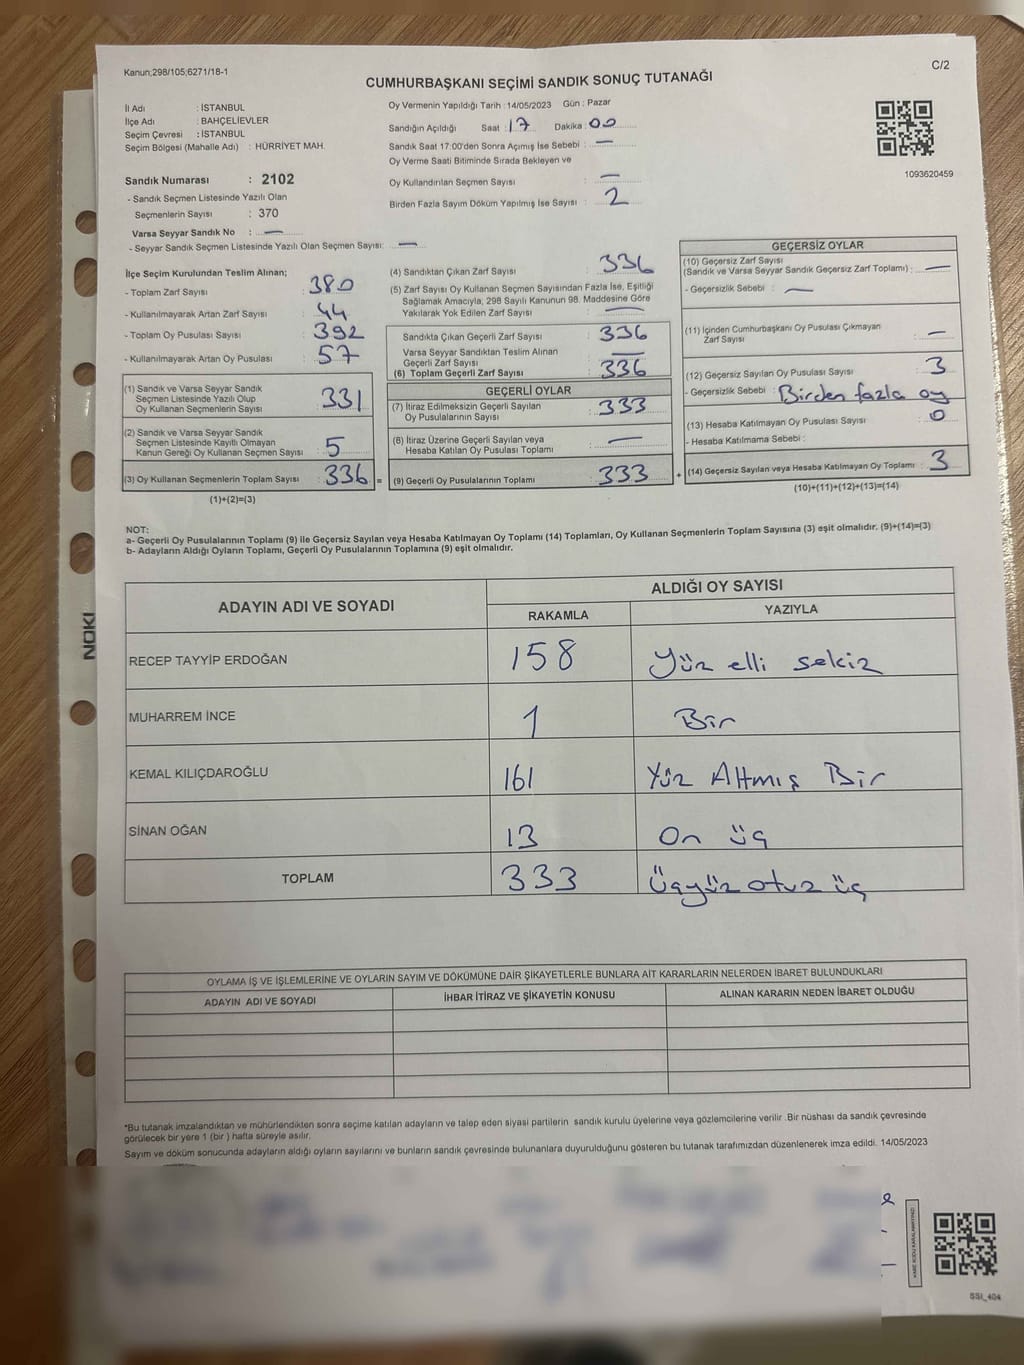 Kanun;298/105;6271/18-1
C/2
CUMHURBAŞKANI SEÇİMİ SANDIK SONUÇ TUTANAĞI
İl Adı : İSTANBUL
İlçe Adı : BAHÇELİEVLER
Seçim Çevresi : İSTANBUL
Seçim Bölgesi (Mahalle Adı) : HÜRRİYET MAH.
Sandık Numarası : 2102
- Sandık Seçmen Listesinde Yazılı Olan
Seçmenlerin Sayısı : 370
Varsa Seyyar Sandık No : —
- Seyyar Sandık Seçmen Listesinde Yazılı Olan Seçmen Sayısı: —
Oy Vermenin Yapıldığı Tarih : 14/05/2023 Gün : Pazar
Sandığın Açıldığı Saat : 17 Dakika : 00
Sandık Saat 17:00'den Sonra Açımış İse Sebebi : —
Oy Verme Saati Bitiminde Sırada Bekleyen ve
Oy Kullandırılan Seçmen Sayısı : —
Birden Fazla Sayım Döküm Yapılmış İse Sayısı : 2
1093620459
İlçe Seçim Kurulundan Teslim Alınan;
- Toplam Zarf Sayısı : 380
- Kullanılmayarak Artan Zarf Sayısı : 44
- Toplam Oy Pusulası Sayısı : 392
- Kullanılmayarak Artan Oy Pusulası : 57
(1) Sandık ve Varsa Seyyar Sandık
Seçmen Listesinde Yazılı Olup
Oy Kullanan Seçmenlerin Sayısı : 331
(2) Sandık ve Varsa Seyyar Sandık
Seçmen Listesinde Kayıtlı Olmayan
Kanun Gereği Oy Kullanan Seçmen Sayısı : 5
(3) Oy Kullanan Seçmenlerin Toplam Sayısı : 336 =
(1)+(2)=(3)
(4) Sandıktan Çıkan Zarf Sayısı : 336
(5) Zarf Sayısı Oy Kullanan Seçmen Sayısından Fazla İse, Eşitliği
Sağlamak Amacıyla, 298 Sayılı Kanunun 98. Maddesine Göre
Yakılarak Yok Edilen Zarf Sayısı : —
Sandıkta Çıkan Geçerli Zarf Sayısı : 336
Varsa Seyyar Sandıktan Teslim Alınan
Geçerli Zarf Sayısı : —
(6) Toplam Geçerli Zarf Sayısı : 336
GEÇERLİ OYLAR
(7) İtiraz Edilmeksizin Geçerli Sayılan
Oy Pusulalarının Sayısı : 333
(8) İtiraz Üzerine Geçerli Sayılan veya
Hesaba Katılan Oy Pusulası Toplamı : —
(9) Geçerli Oy Pusulalarının Toplamı : 333 +
GEÇERSİZ OYLAR
(10) Geçersiz Zarf Sayısı
(Sandık ve Varsa Seyyar Sandık Geçersiz Zarf Toplamı) : —
- Geçersizlik Sebebi : —
(11) İçinden Cumhurbaşkanı Oy Pusulası Çıkmayan
Zarf Sayısı : —
(12) Geçersiz Sayılan Oy Pusulası Sayısı : 3
- Geçersizlik Sebebi : Birden fazla oy
(13) Hesaba Katılmayan Oy Pusulası Sayısı : 0
- Hesaba Katılmama Sebebi :
(14) Geçersiz Sayılan veya Hesaba Katılmayan Oy Toplamı : 3
(10)+(11)+(12)+(13)=(14)
NOT:
a- Geçerli Oy Pusulalarının Toplamı (9) ile Geçersiz Sayılan veya Hesaba Katılmayan Oy Toplamı (14) Toplamları, Oy Kullanan Seçmenlerin Toplam Sayısına (3) eşit olmalıdır. (9)+(14)=(3)
b- Adayların Aldığı Oyların Toplamı, Geçerli Oy Pusulalarının Toplamına (9) eşit olmalıdır.
ADAYIN ADI VE SOYADI
ALDIĞI OY SAYISI
RAKAMLA YAZIYLA
RECEP TAYYİP ERDOĞAN 158 Yüz elli sekiz
MUHARREM İNCE 1 Bir
KEMAL KILIÇDAROĞLU 161 Yüz Altmış Bir
SİNAN OĞAN 13 On üç
TOPLAM 333 Üçyüz otuz üç
OYLAMA İŞ VE İŞLEMLERİNE VE OYLARIN SAYIM VE DÖKÜMÜNE DAİR ŞİKAYETLERLE BUNLARA AİT KARARLARIN NELERDEN İBARET BULUNDUKLARI
ADAYIN ADI VE SOYADI İHBAR İTİRAZ VE ŞİKAYETİN KONUSU ALINAN KARARIN NEDEN İBARET OLDUĞU
*Bu tutanak imzalandıktan ve mühürlendikten sonra seçime katılan adayların ve talep eden siyasi partilerin sandık kurulu üyelerine veya gözlemcilerine verilir .Bir nüshası da sandık çevresinde
görülecek bir yere 1 (bir ) hafta süreyle asılır.
Sayım ve döküm sonucunda adayların aldığı oyların sayılarını ve bunların sandık çevresinde bulunanlara duyurulduğunu gösteren bu tutanak tarafımızdan düzenlenerek imza edildi. 14/05/2023
NOKI
SSI_404